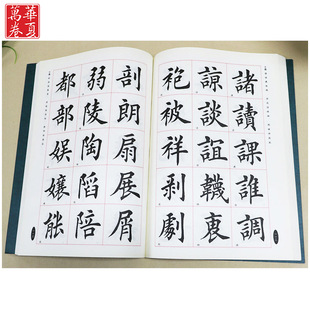 華夏
萬卷
諸讀課誰調
諒談誼韈衷
袍被祥剥劇
剖朗扇展屑
弱陵陶䧟陪
都部娱孃能